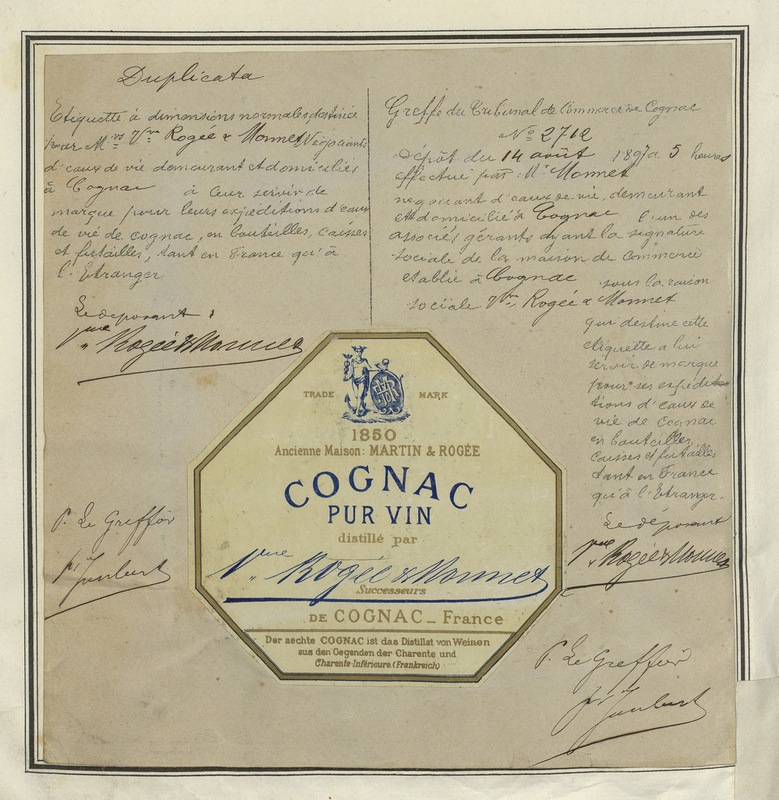 Duplicata
Etiquette à dimensions normales destinée
par Mrs Vve Rogée & Monnet Négociants
d'eaux de vie demeurant et domiciliés
à Cognac à leur servir de
marque pour leurs expéditions d'eaux
de vie de cognac, en bouteilles, caisses
et futailles, tant en France qu'à
l'Etranger
Le déposant :
Vve Rogée & Monnet
P. Le Greffier
Greffe du Tribunal de Commerce de Cognac
No 2712
Dépôt du 14 août 1897 à 5 heures
effectué par Mr Monnet
négociant d'eaux de vie, demeurant
et domicilié à Cognac l'un des
associés gérants ayant la signature
sociale de la maison de commerce
établie à Cognac sous la raison
sociale Vve Rogée & Monnet
qui destine cette
étiquette à lui
servir de marque
pour ses expédi-
tions d'eaux de
vie de Cognac
en bouteilles,
caisses et futailles
tant en France
qu'à l'Etranger.
Le déposant
Vve Rogée & Monnet
P. Le Greffier
TRADE MARK
1850
Ancienne Maison: MARTIN & ROGÉE
COGNAC
PUR VIN
distillé par
Vve Rogée & Monnet
Successeurs
DE COGNAC _ France
Der aechte COGNAC ist das Distillat von Weinen
aus den Gegenden der Charente und
Charente-Inférieure (Frankreich)